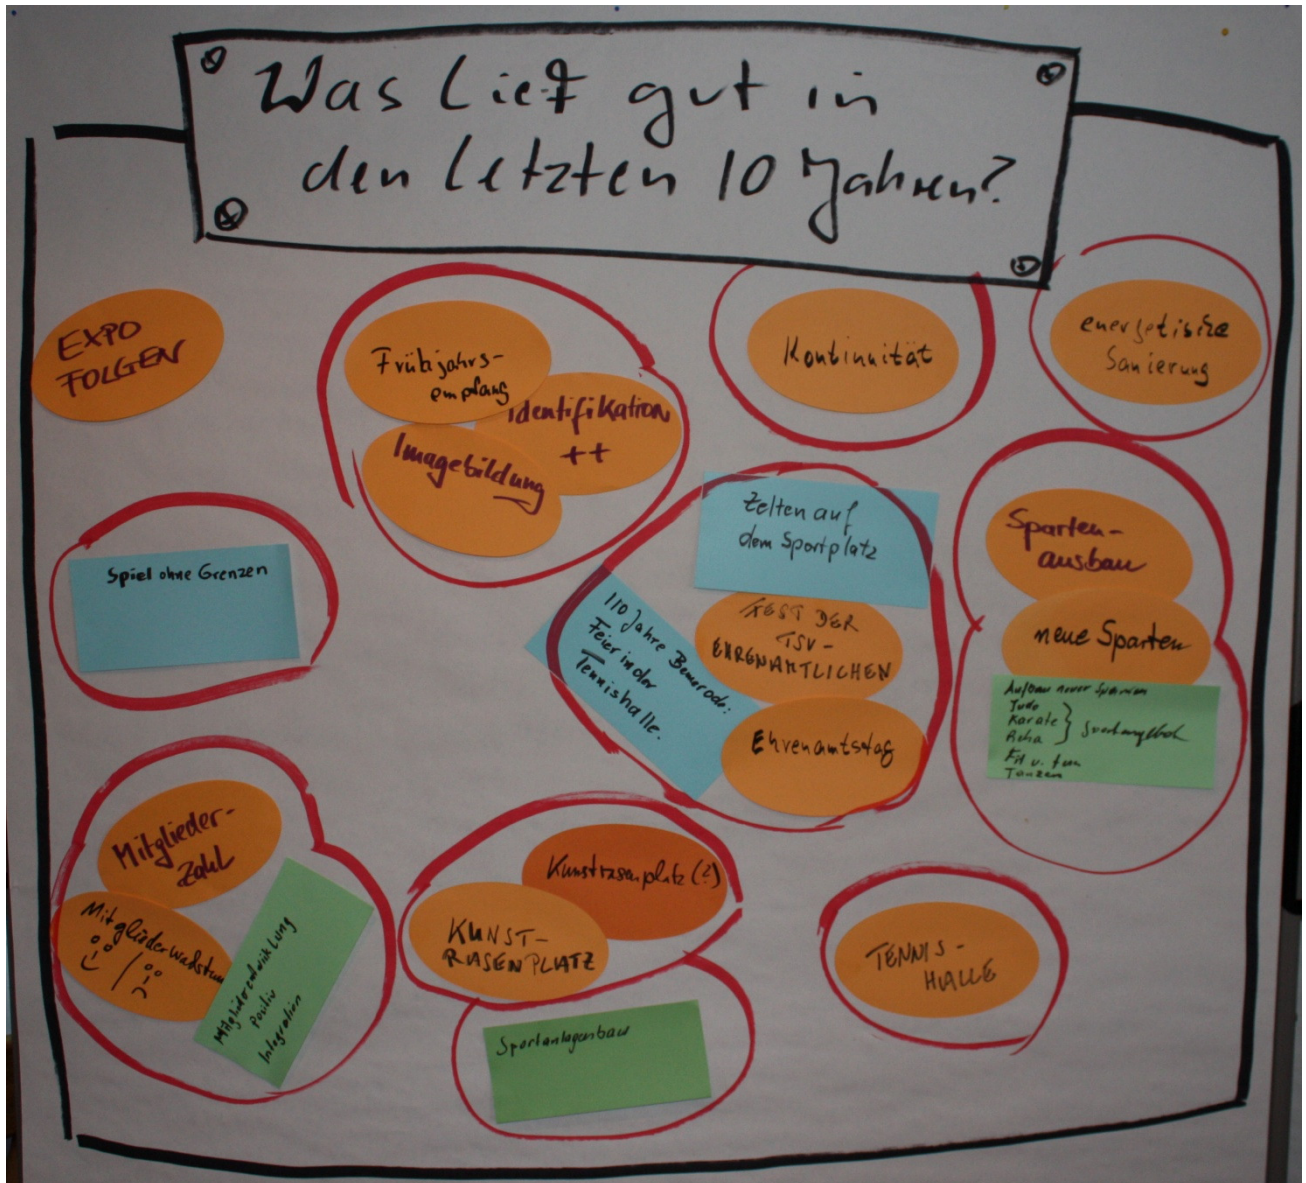 Was lief gut in
den letzten 10 Jahren?
EXPO
FOLGEN
Frühjahrs-
empfang
Identifikation
++
Imagebildung
Kontinuität
energetische
Sanierung
Spiel ohne Grenzen
Zelten auf
dem Sportplatz
110 Jahre Bemerode:
Feier in der
Tennishalle.
FEST DER
TSV-
EHRENAMTLICHEN
Ehrenamtstag
Sparten-
ausbau
neue Sparten
Aufbau neuer Sparten
Judo
Karate
Reha
Fit u. fun
Tanzen
Mitglieder-
zahl
Mitgliederwachstum
Mitgliederentwicklung
positiv
Integration
Kunstrasenplatz (?)
KUNST-
RASENPLATZ
Sportanlagenbau
TENNIS-
HALLE